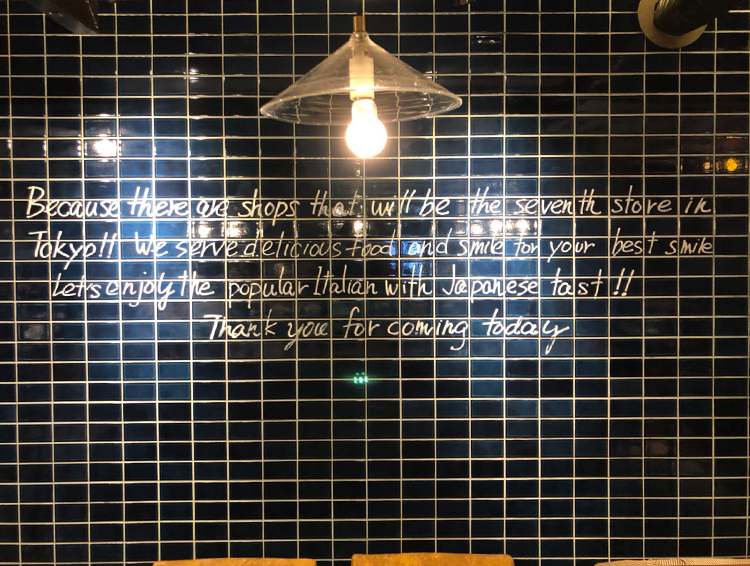 Because there are shops that will be the seventh store in
Tokyo!! We serve delicious food and smile for your best smile
Let's enjoy the popular Italian with Japanese tast!!
Thank you for coming today